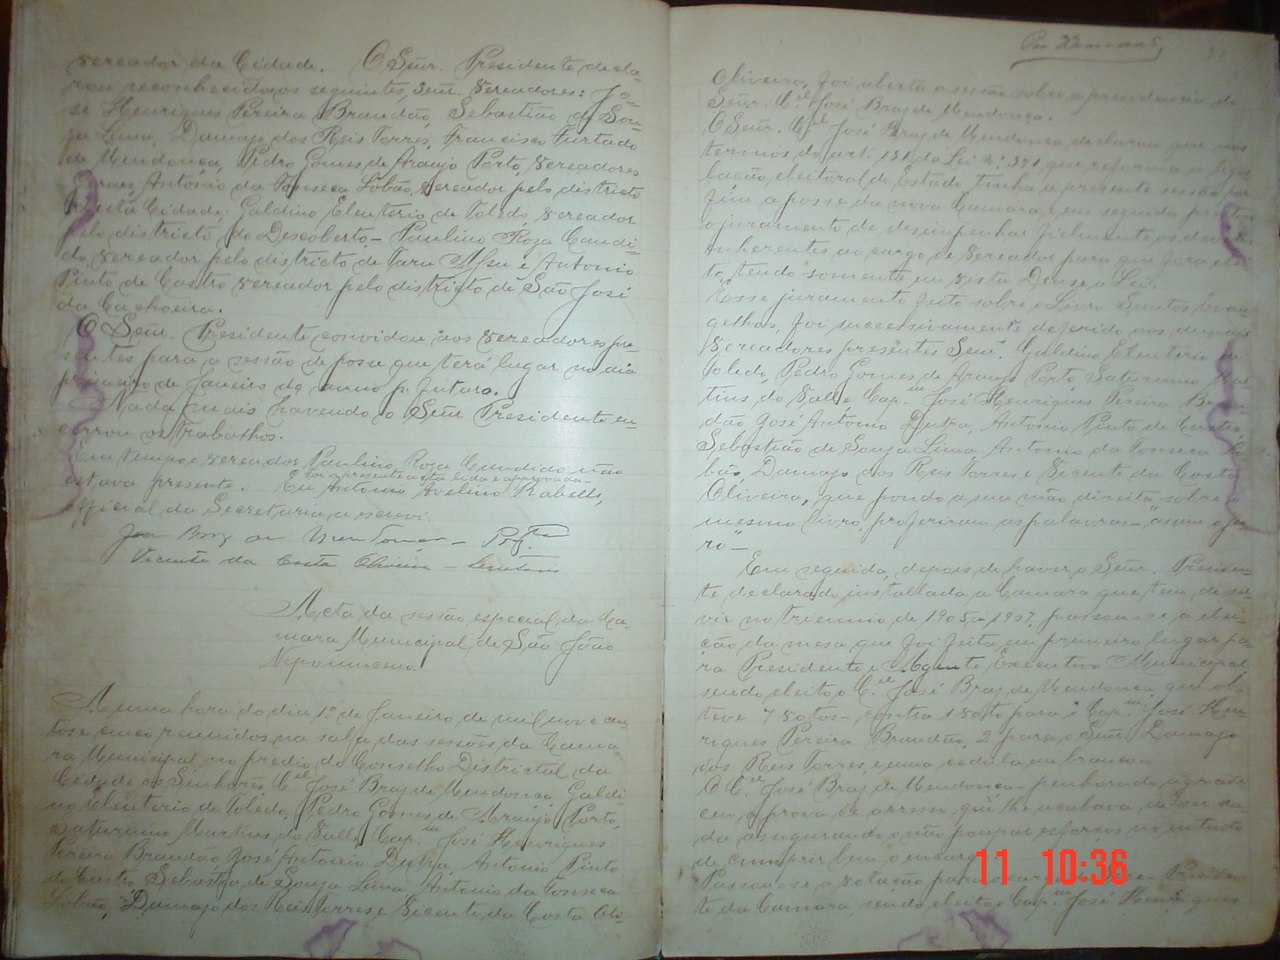 vereador da Cidade. O Señr. Presidente decla-
rou reconhecidos os seguintes, Senr. Vereadores: Jo-
se Henriques Pereira Brandão, Sebastião de Sou-
za Lima, Damaso dos Reis Torres, Francisco Furtado
de Mendonça, Pedro Gomes de Araujo Porto, vereadores
geraes, António da Fonseca Lobão, vereador pelo districto
desta Cidade. Galdino Eleuterio de Toledo, vereador
pelo districto do Descoberto – Paulino Roza Candi-
do, vereador pelo districto de Taru Assu e Antonio
Pinto de Castro vereador pelo districto de São José
da Cachoeira.
O Señr. Presidente convidou aos vereadores pre-
sentes para a sessão de posse que terá lugar no dia
primeiro de Janeiro do anno p. futuro.
Nada mais havendo o Señr Presidente en-
cerrou os trabalhos.
Em tempo o vereador Paulino Roza Candido não
estava presente. E foi a presente acta lida e approvada
Eu Antonio Avelino Rabello,
official da Secretaria a escrevi.
Vicente da Costa Oliveira – Secretario
Acta da sessão especial da Ca-
mara Municipal de São João
Nepomuceno.
A uma hora do dia 1º de Janeiro de mil nove cen-
tos e cinco reunidos na sala das sessões da Cama-
ra Municipal no predio do Conselho Districtal da
Cidade os Senhores, Cel José Braz de Mendonça, Galdi-
no Eleuterio de Toledo, Pedro Gomes de Araujo Porto,
Saturnino Martins do Valle, Cap.m José Henriques
Pereira Brandão José Antonio Dutra, Antonio Pinto
de Castro Sebastião de Souza Lima Antonio da Fonseca
Lobão, Damaso dos Reis Torres e Vicente da Costa Oli-
Oliveira, foi aberta a sessão sobre a presidencia do
Señr. Cel José Braz de Mendonça.
O Señr. Cel José Braz de Mendonça declarou que nos
termos do art. 131 da Lei n.º 391 que reforma a legis-
lação eleitoral do Estado, tinha a presente sessão por
fim a posse da nova Camara e em seguida prestou
o juramento de desempenhar fielmente os deveres
inherentes ao cargo de vereador para que fora elei-
to, tendo somente em vista Deus e a Lei.
Esse juramento feito sobre o Livro Santos Evan-
gelhos, foi successivamente deferido aos demais
vereadores presêntes Senr. Galdino Eleuterio de
Toledo, Pedro Gomes de Araujo Porto, Saturnino Mar-
tins do Valle Cap.m José Henriques Pereira Bran-
dão José António Dutra, Antonio Pinto de Castro
Sebastião de Souza Lima, Antonio da Fonseca Lo-
bão, Damaso dos Reis Torres e Vicente da Costa
Oliveira, que pondo a sua mão direita sobre o
mesmo livro proferiram as palavras – "assim o ju-
ro" –
Em seguida, depois de haver o Señr. Presiden-
te declarado installada a Camara que tem de ser-
vir no triennio de 1905 a 1907, passou-se a elei-
ção da mesa que foi feita em primeiro lugar pa-
ra Presidente e Agente Executivo Municipal,
sendo eleito o Cel José Braz de Mendonça que ob-
teve 7 votos – contra 1 voto para o Cap.m José Hen-
riques Pereira Brandão, 2 para o Señr. Damaso
dos Reis Torres, e uma cedula em branco –
O Cel José Braz de Mendonça – penhorado, agrade-
ceu a prova de apreço que lhe acabava de ser da-
da assegurando não poupar esforços no intuito
de cumprir bem o encargo
Passou-se a votação para Vice-Presiden-
te da Camara, sendo eleito o Cap.m José Henriques
11 10:36